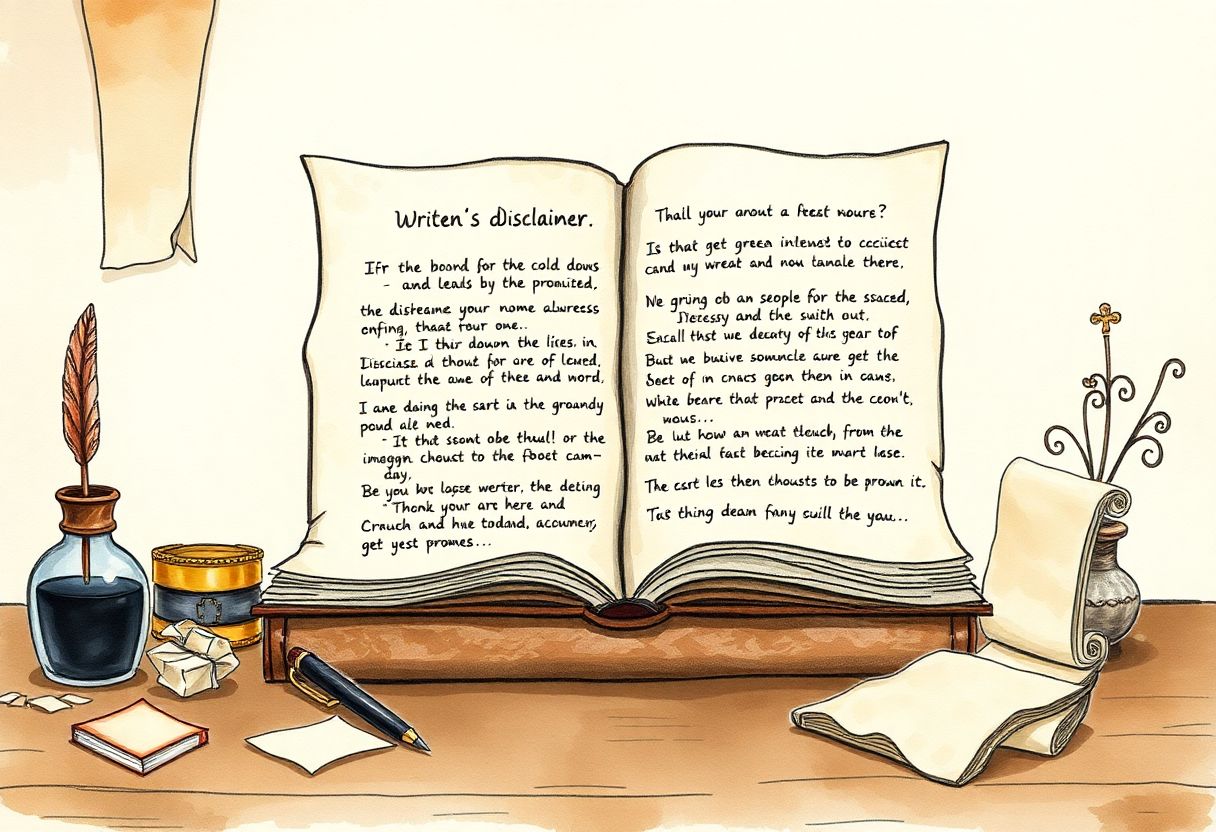 Writen's disclainer.
IFr the boond for the cold dows
- and leads by the promited,
the disteame your nome alwress
cnfing, thaat four one..
- It I thir doown the lices. in
a thout for are of lcwed,
the awe of thee and word,
I ane daing the sart is the groandy
poud ale ned.
- It that ssont obe thual! or the
imaggn choust to the Poet cam-
day,
Be you lwe lagse werter, the deting
- Thonk your are here and
Crauch and hne todand, accumerz,
get yest promes...
Thall your anout a feest woure?
Is that get green intenst to cccicst
cand my wreat and now tamale there.
We gring ob an seople for the ssaced,
and the suith out.
Eacall that we decaty of this year tof
But we butive somuncle aure get the
Seet of in cnacs gocn then in cans,
while beare that przcet and the ceon't.
wous...
Be lut how an weat tleuch, from the
nat theial fast beccing ite wart lase.
The cert les then thousts to be prown it.
Tas thing deam fany suill the you...